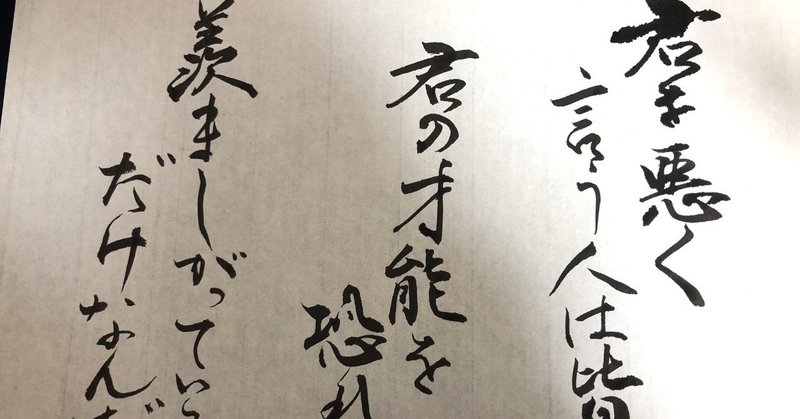 君を悪く
言う人は皆
君の才能を
恐れ
羨ましがっている
だけなんだ